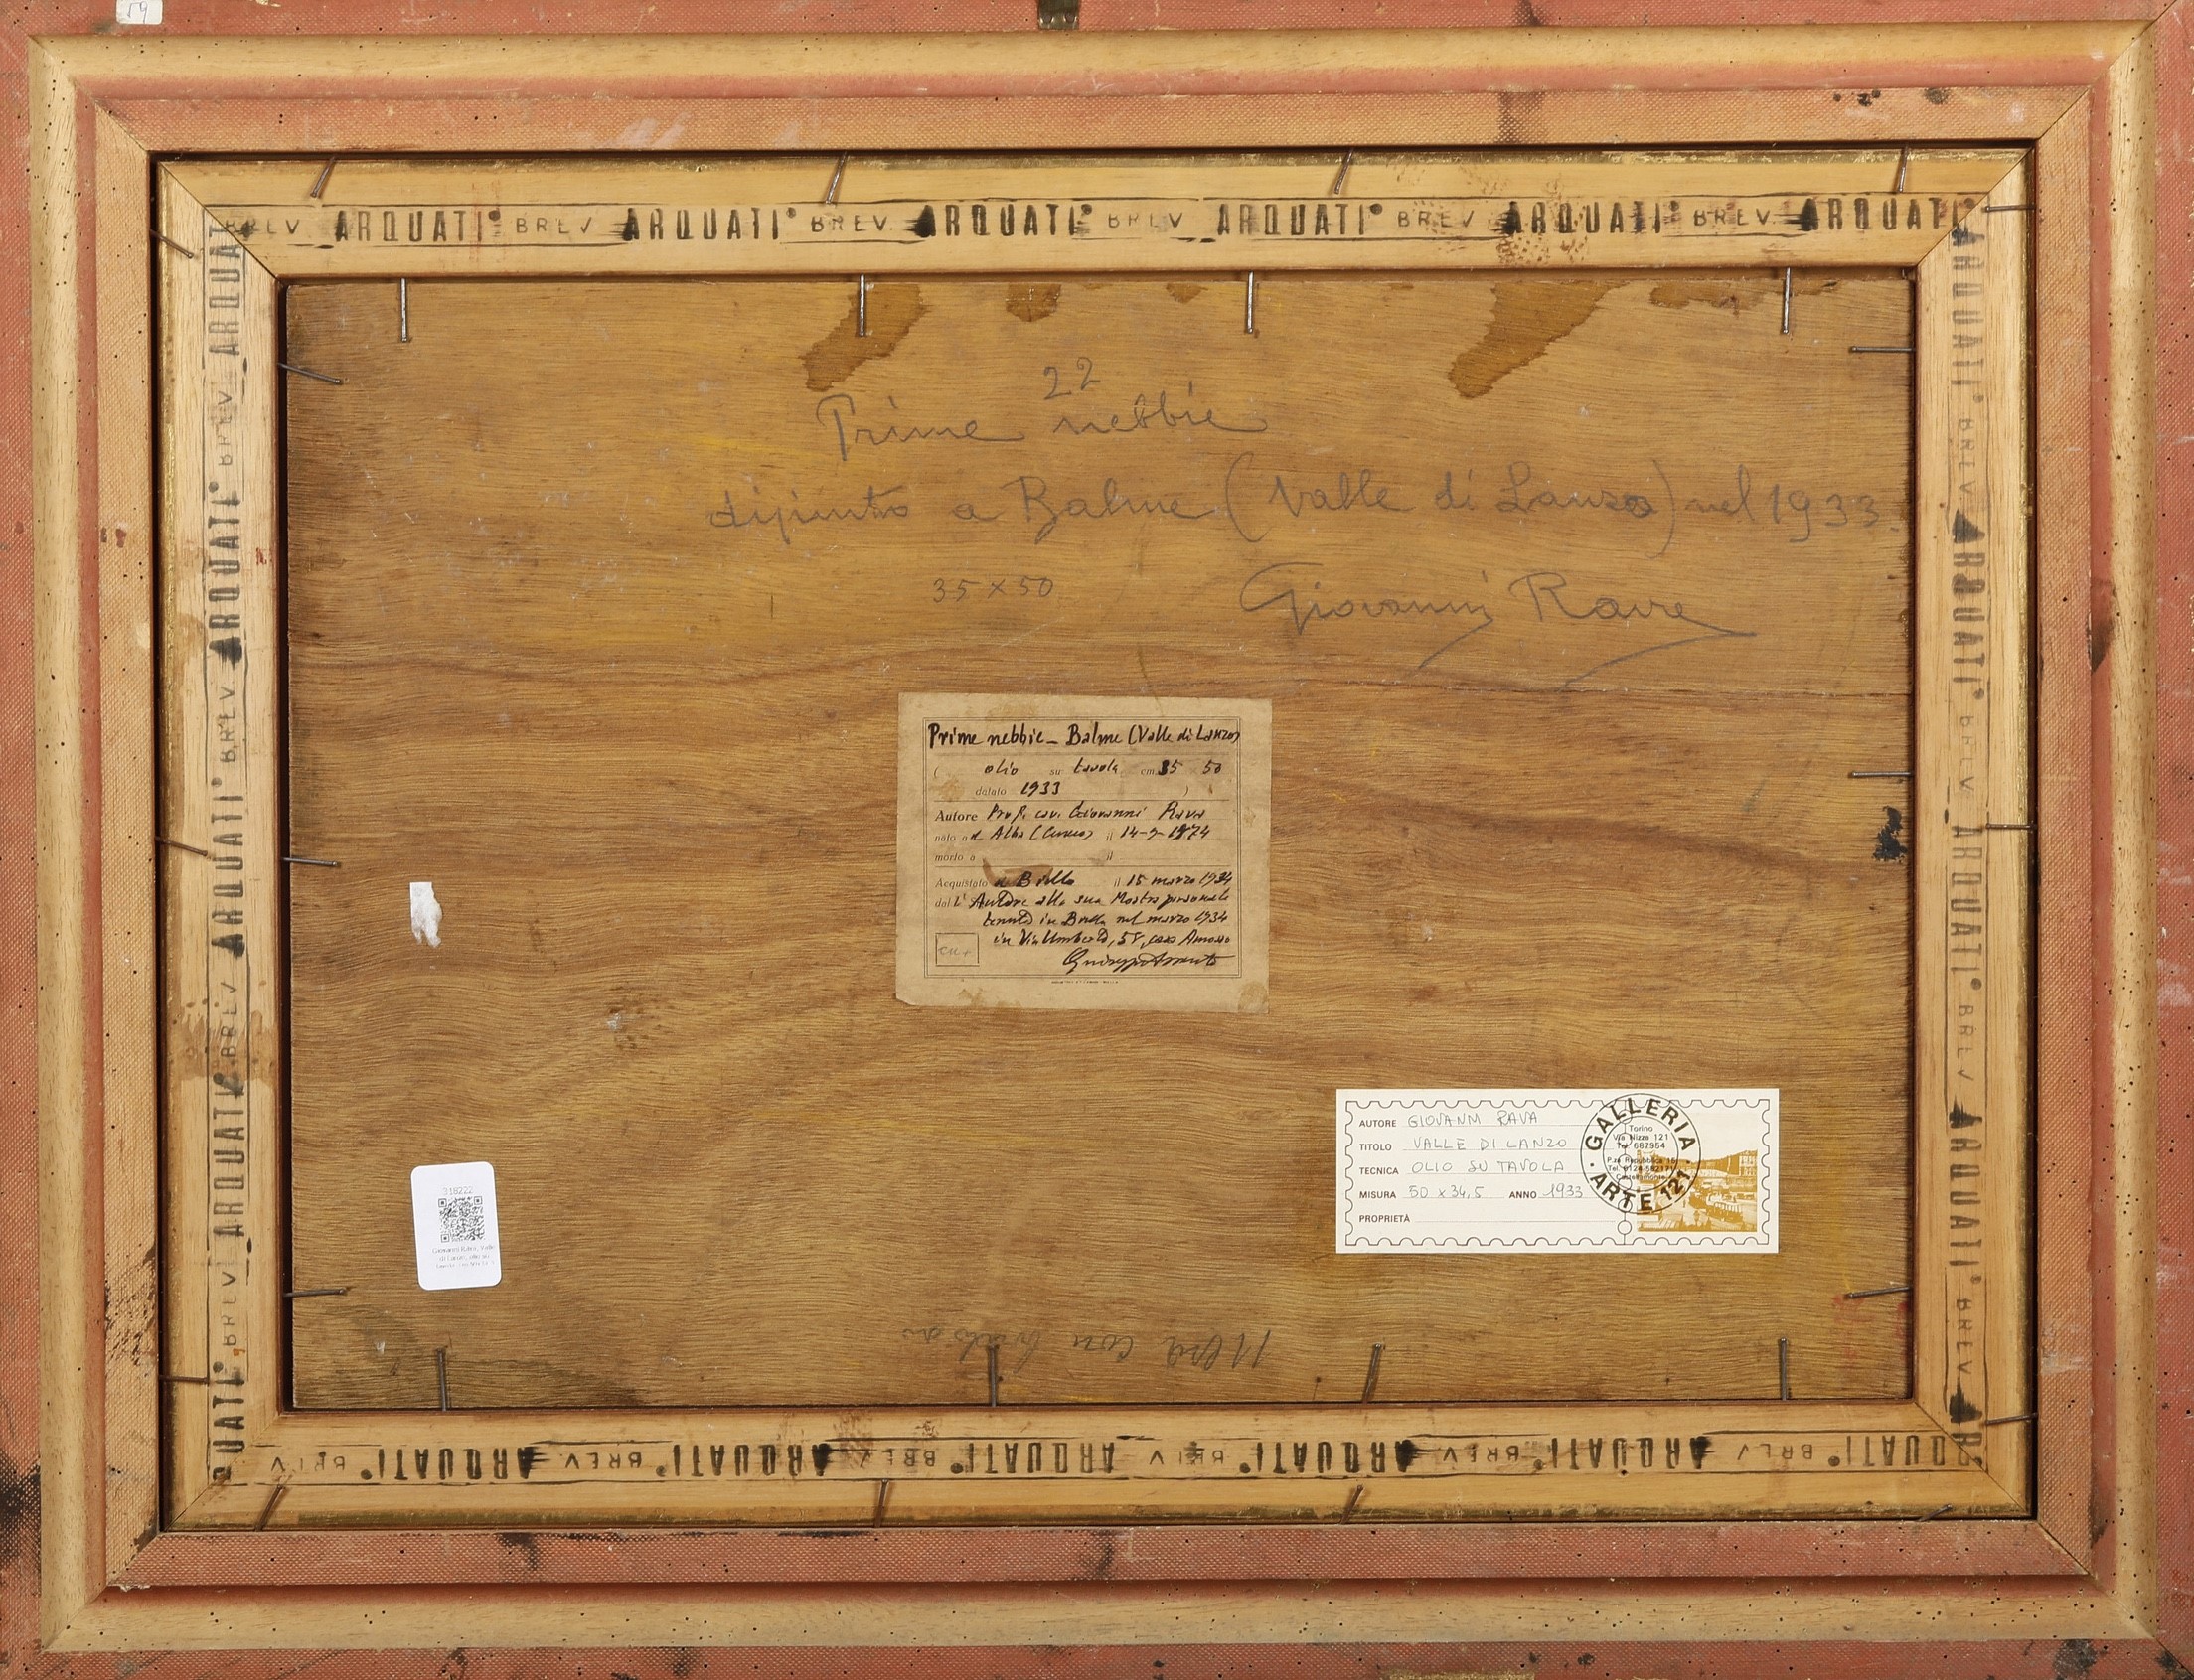 BREV ARQUATI BREV ARQUATI BREV. ARQUATI BREV ARQUATI BREV ARQUATI BREV. ARQUATI
22
Prime nebbie
dipinto a Balme (Valle di Lanzo) nel 1933.
35 x 50
Giovanni Rava
Prime nebbie - Balme (Valle di Lanzo)
( olio su tavola cm. 35 50
datato 1933 )
Autore Prof. cav. Giovanni Rava
nato a Alba (Cuneo) il 1874
morto a il
Acquistato a Biella il 15 marzo 1934
dal l'Autore alla sua Mostra personale
tenuta in Biella nel marzo 1934
in Via Umberto, 58, casa Amosso
AUTORE GIOVANNI RAVA
TITOLO VALLE DI LANZO
TECNICA OLIO SU TAVOLA
MISURA 50 x 34,5 ANNO 1933
PROPRIETÀ
GALLERIA ARTE 121
Torino
Via Nizza 121
Tel. 687954
318222
Giovanni Rava, Valle
di Lanzo, olio su
ARQUATI BREV ARQUATI BREV ARQUATI BREV ARQUATI BREV ARQUATI BREV
ARQUATI BREV ARQUATI BREV ARQUATI BREV ARQUATI BREV
BREV ARQUATI BREV ARQUATI BREV ARQUATI BREV ARQUATI BREV ARQUATI BREV ARQUATI